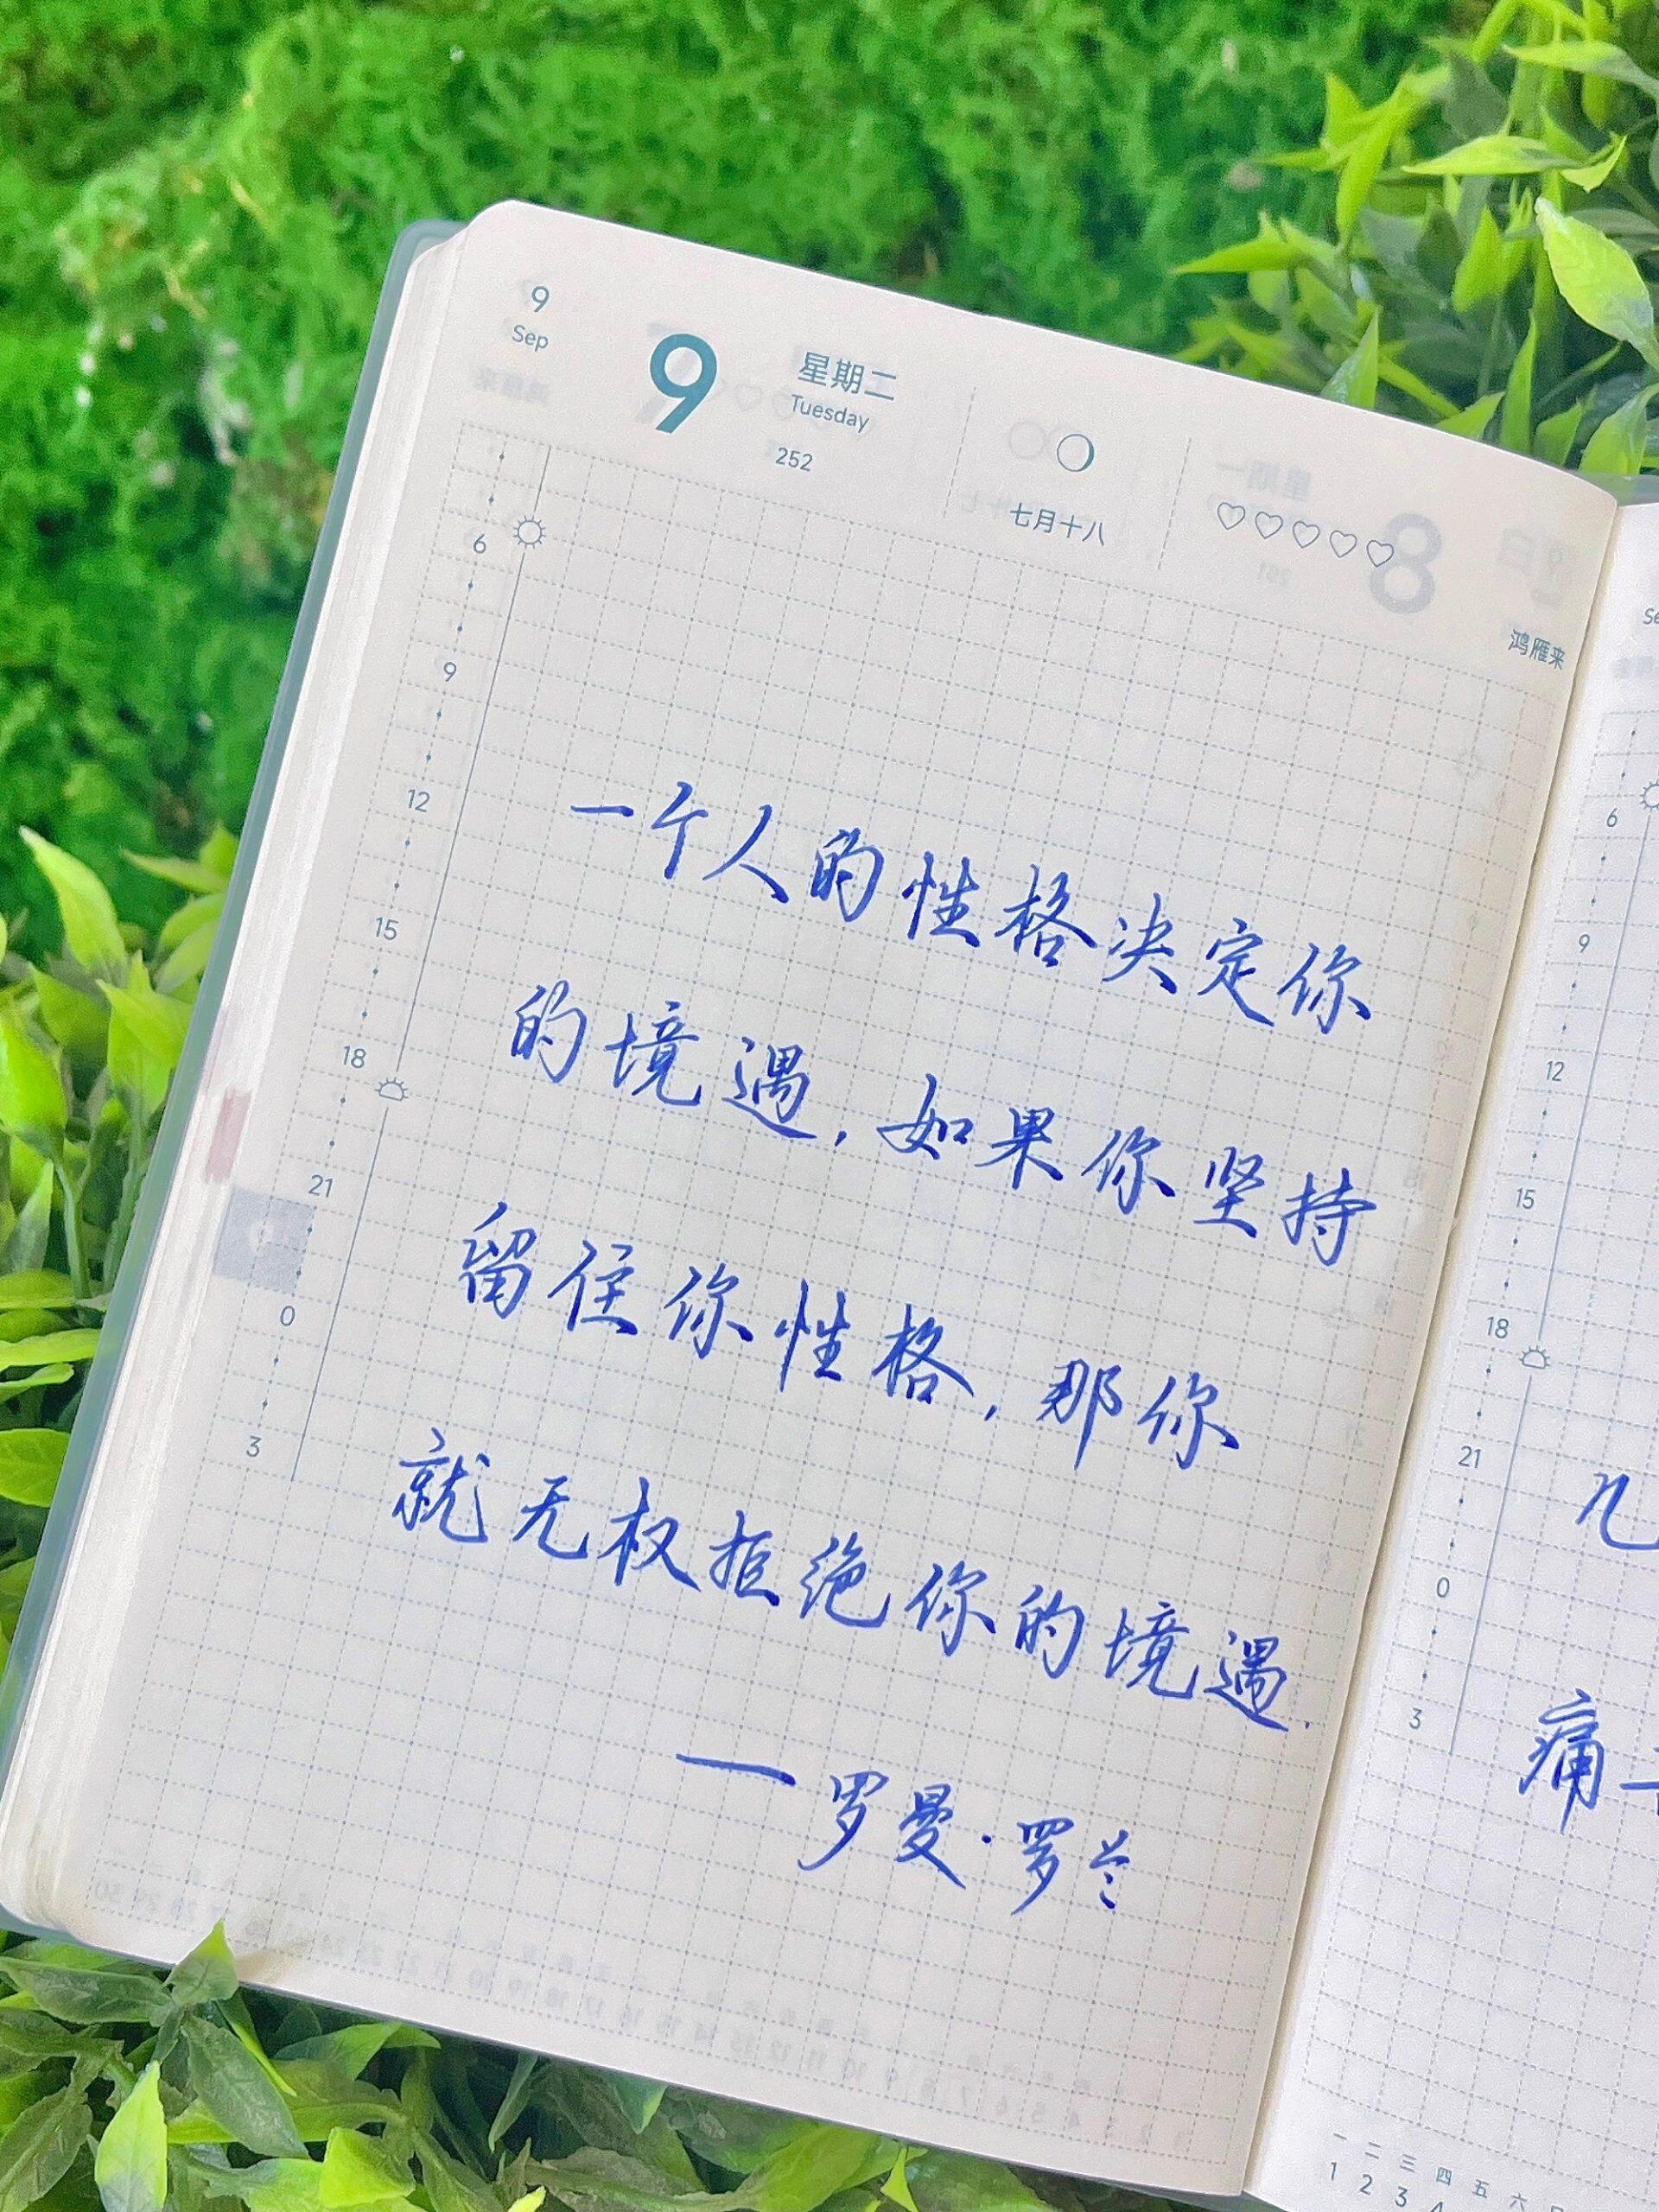 9
Sep
9
星期二
Tuesday
252
七月十八
鸿雁来
6
9
12
15
18
21
0
3
一个人的性格决定你
的境遇,如果你坚持
留住你性格,那你
就无权拒绝你的境遇.
—罗曼·罗兰
6
9
12
15
18
21
0
3
几
痛
一 二 三 四 五 六
1 2 3 4